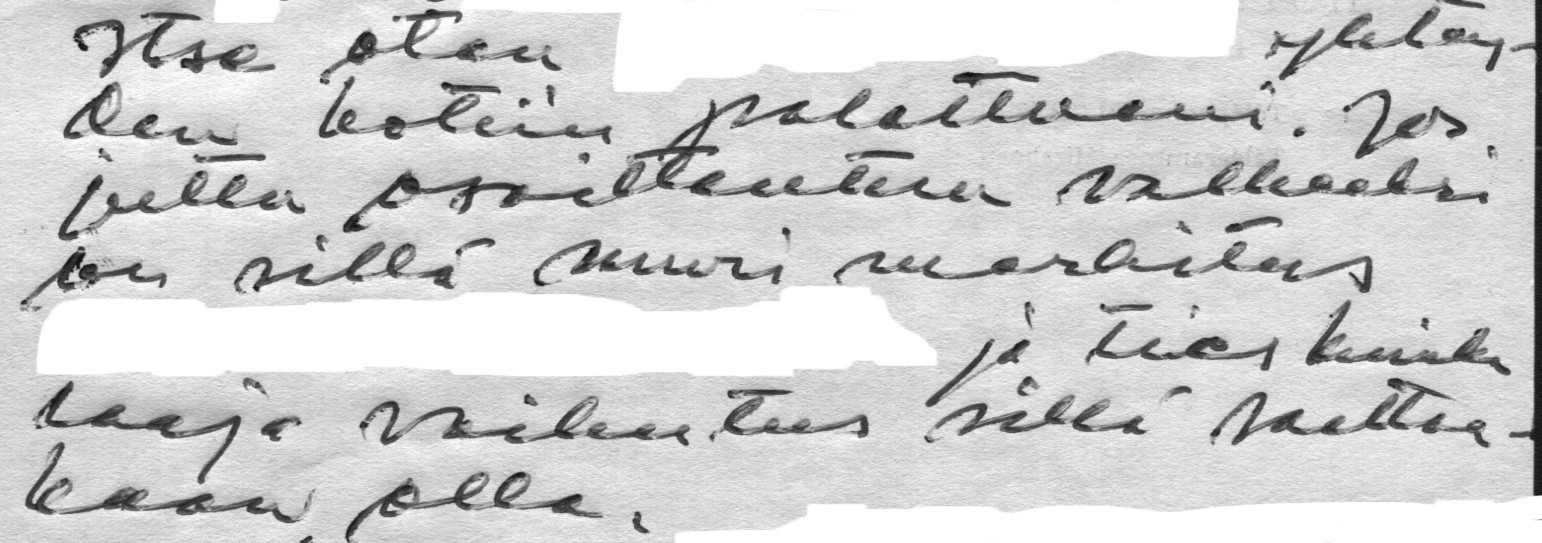 Itse otan yhtey-
den kotiin palattuani. Jos
jutta osoittautuu valheeksi
on sillä suuri merkitys
ja ties kuinka
laaja vaikutus sillä saattaa-
kaan olla.